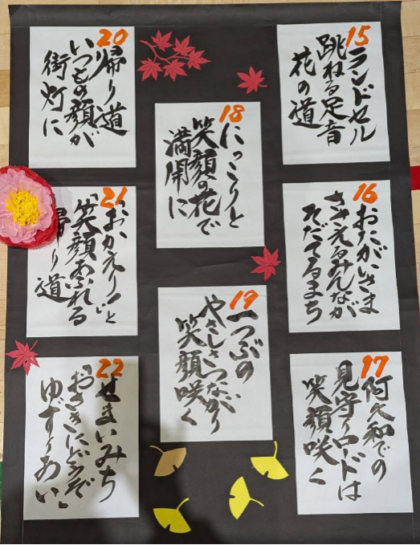 15
ランドセル
跳ねる足音
花の道
16
おたがいさま
ささえるみんなが
そだてるまち
17
阿久和での
見守りロードは
笑顔咲く
18
にっこりと
笑顔の花で
満開に
19
一つぶの
やさしさつながり
笑顔咲く
20
帰り道
いつもの顔が
街灯に
21
「おかえり!」と
笑顔あふれる
帰り道
22
せまいみち
「おさきにどうぞ
ゆずりあい」